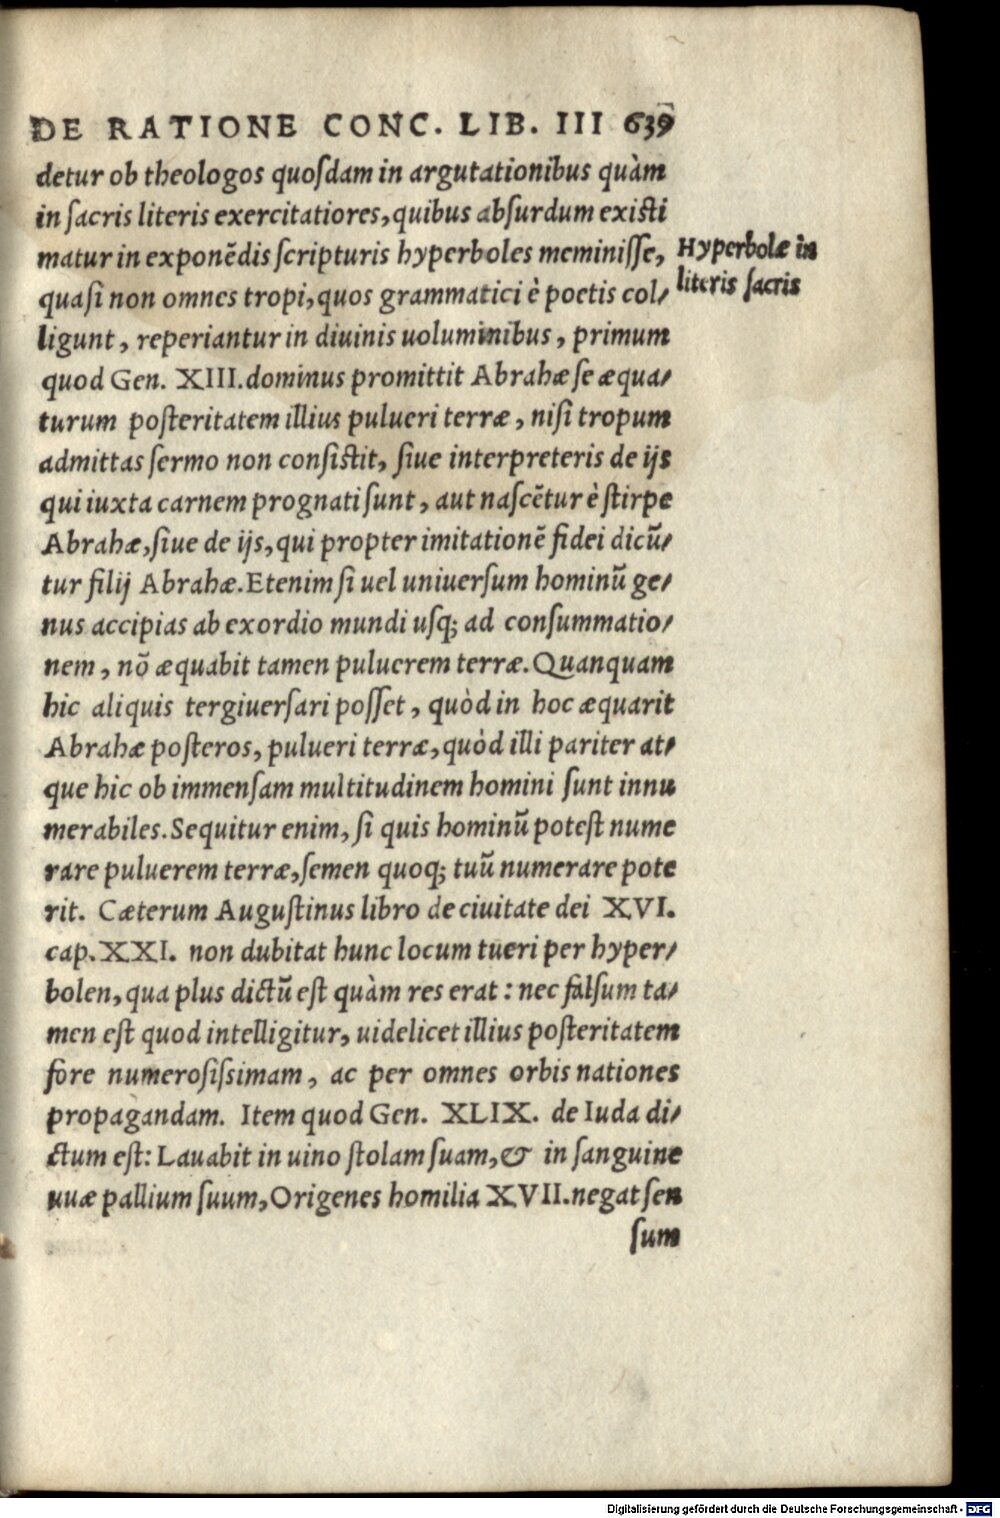 DE RATIONE CONC. LIB. III 639
detur ob theologos quosdam in argutationibus quàm
in sacris literis exercitatiores, quibus absurdum existi
matur in exponẽdis scripturis hyperboles meminisse,
Hyperbolæ in
literis sacris
quasi non omnes tropi, quos grammatici è poetis col/
ligunt, reperiantur in diuinis uoluminibus, primum
quod Gen. XIII. dominus promittit Abrahæ se æqua/
turum posteritatem illius pulueri terræ, nisi tropum
admittas sermo non consistit, siue interpreteris de ijs
qui iuxta carnem prognati sunt, aut nascẽtur è stirpe
Abrahæ, siue de ijs, qui propter imitationẽ fidei dicũ/
tur filij Abrahæ. Etenim si uel uniuersum hominũ ge/
nus accipias ab exordio mundi usq; ad consummatio/
nem, nõ æquabit tamen puluerem terræ. Quanquam
hic aliquis tergiuersari posset, quòd in hoc æquarit
Abrahæ posteros, pulueri terræ, quòd illi pariter at/
que hic ob immensam multitudinem homini sunt innu
merabiles. Sequitur enim, si quis hominũ potest nume
rare puluerem terræ, semen quoq; tuũ numerare pote
rit. Cæterum Augustinus libro de ciuitate dei XVI.
cap. XXI. non dubitat hunc locum tueri per hyper/
bolen, qua plus dictũ est quàm res erat: nec falsum ta/
men est quod intelligitur, uidelicet illius posteritatem
fore numerosissimam, ac per omnes orbis nationes
propagandam. Item quod Gen. XLIX. de Iuda di/
ctum est: Lauabit in uino stolam suam, & in sanguine
uuæ pallium suum, Origenes homilia XVII. negat sen
sum
Digitalisierung gefördert durch die Deutsche Forschungsgemeinschaft - DFG